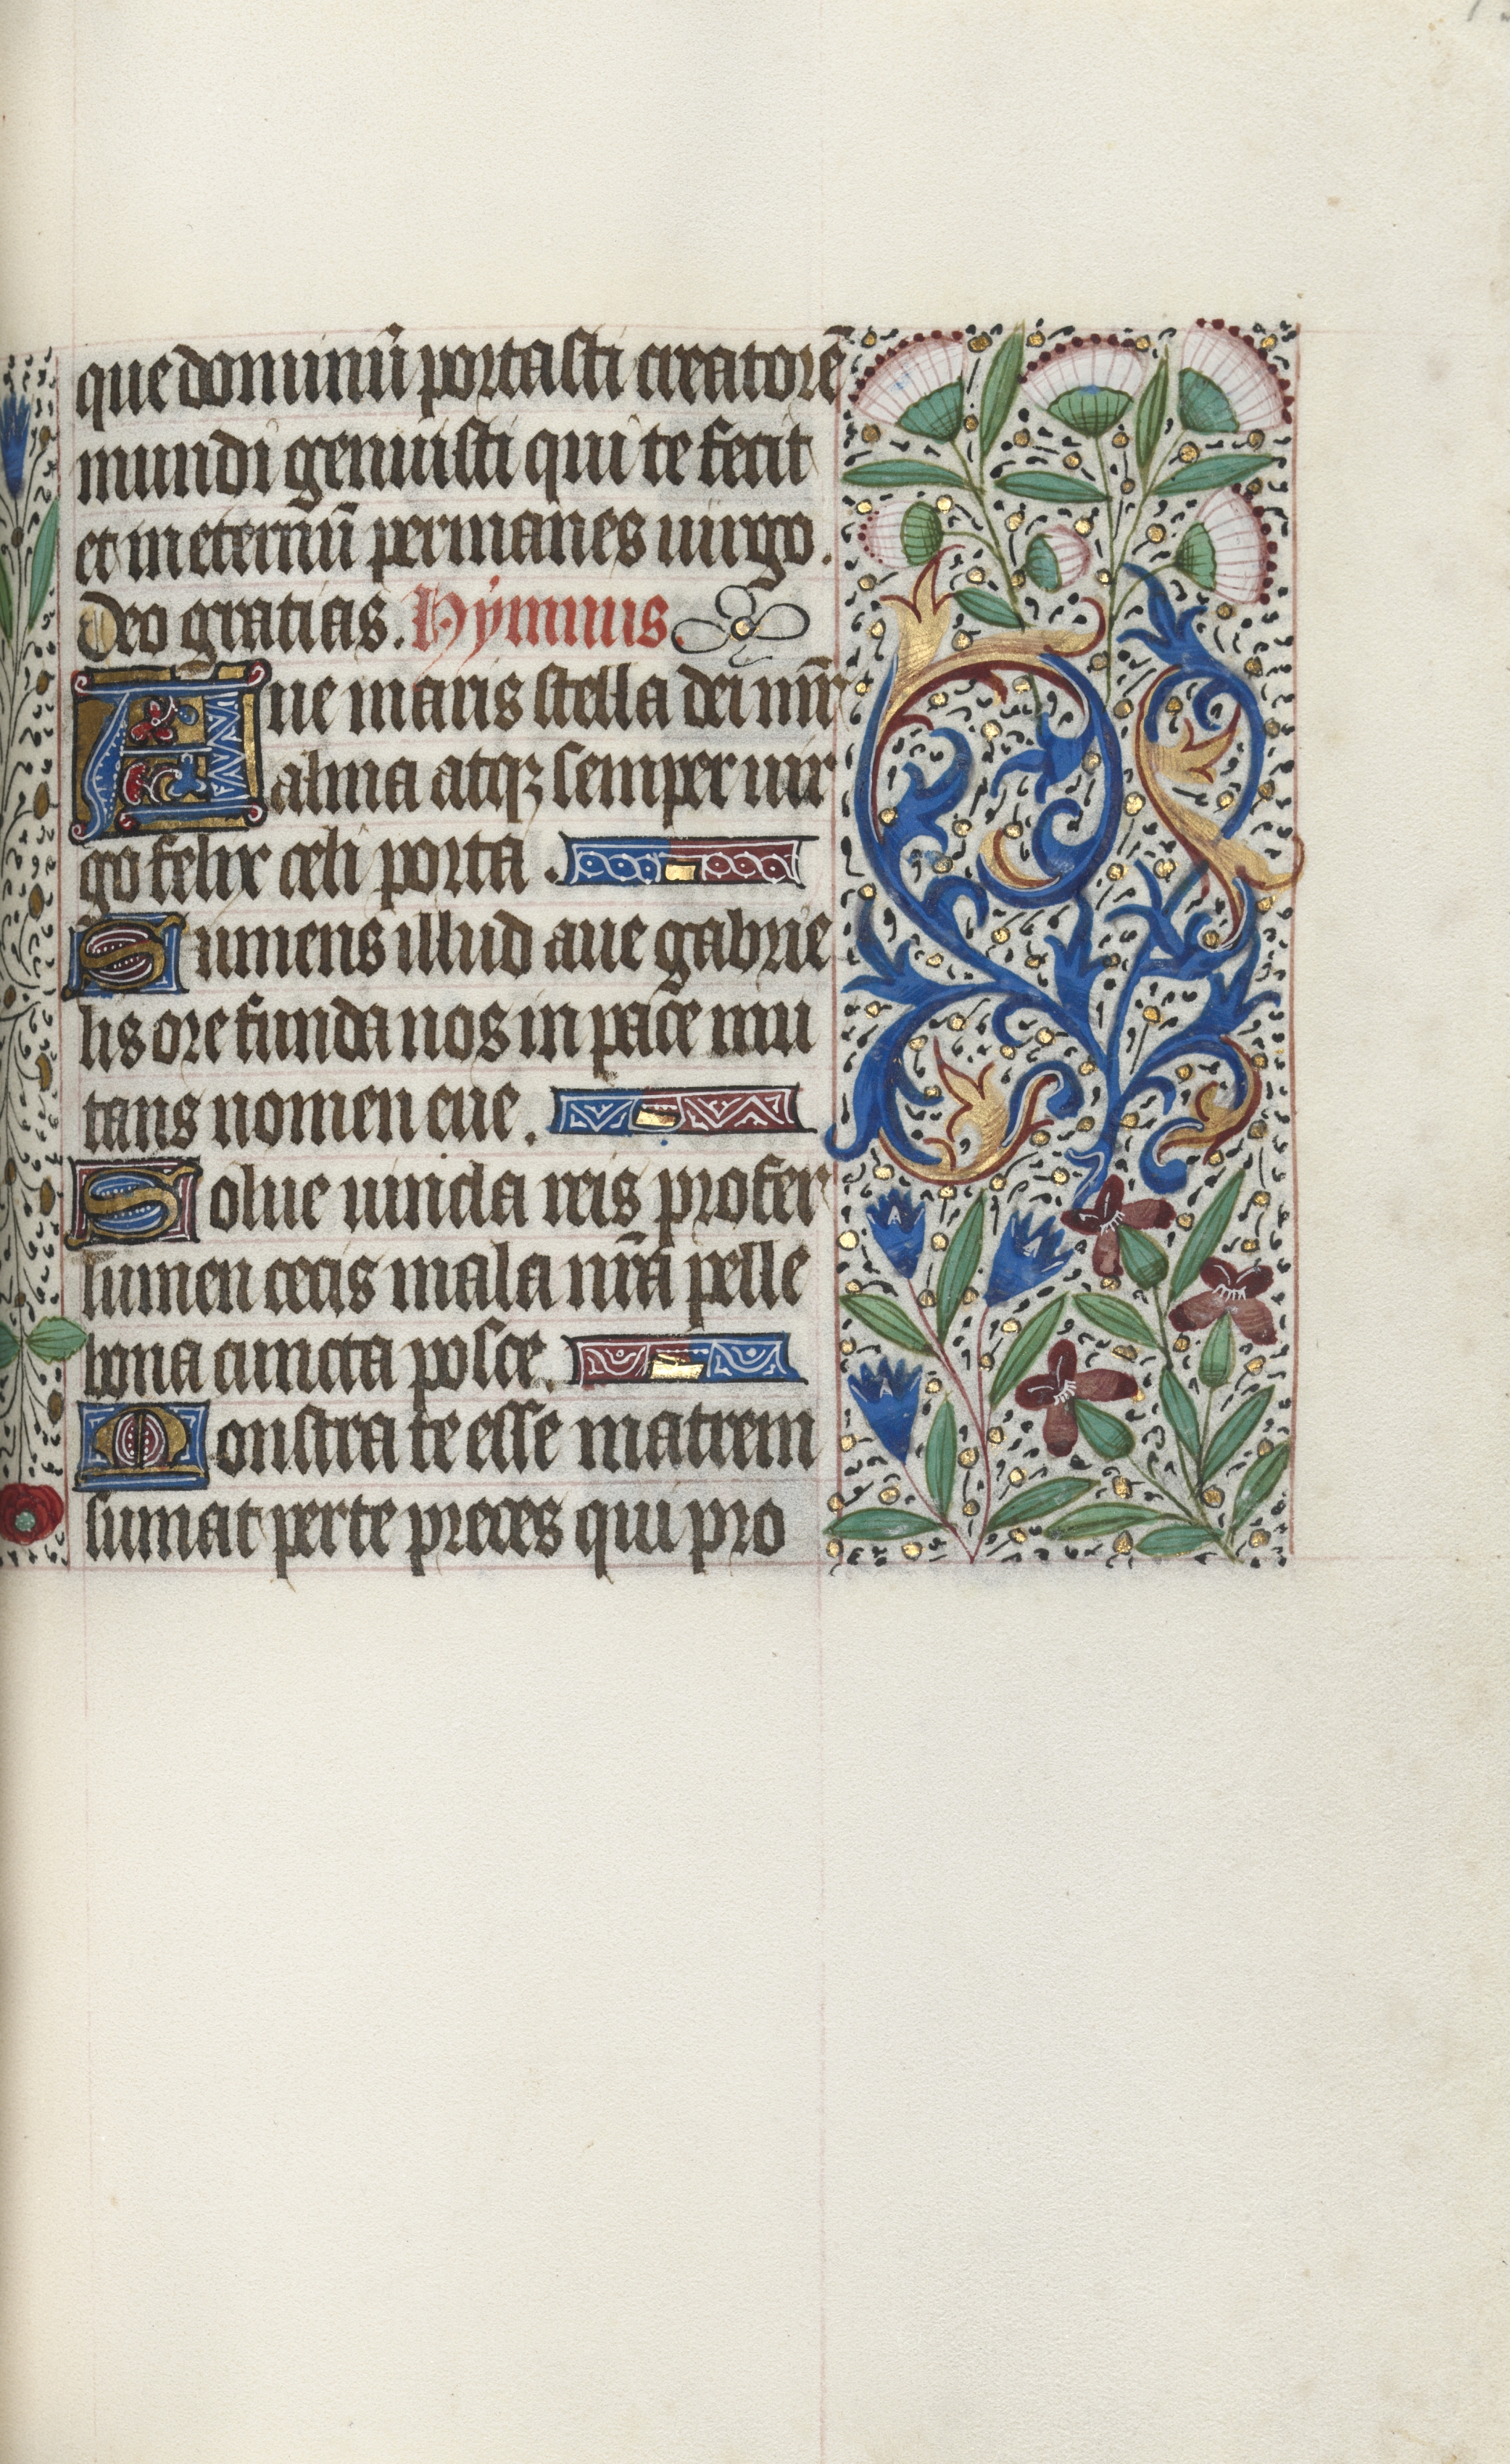 que dominū portasti creatorē
mundi genuisti qui te fecit
et in eternū permanes uirgo.
Deo gratias. Hymnus.
Aue maris stella dei mr̄
alma atqꝫ semper uir
go felix celi porta.
Sumens illud aue gabrie
lis ore funda nos in pace mu
tans nomen eue.
Solue uincla reis profer
lumen cecis mala nr̄a pelle
bona cuncta posce.
Monstra te esse matrem
sumat per te preces qui pro